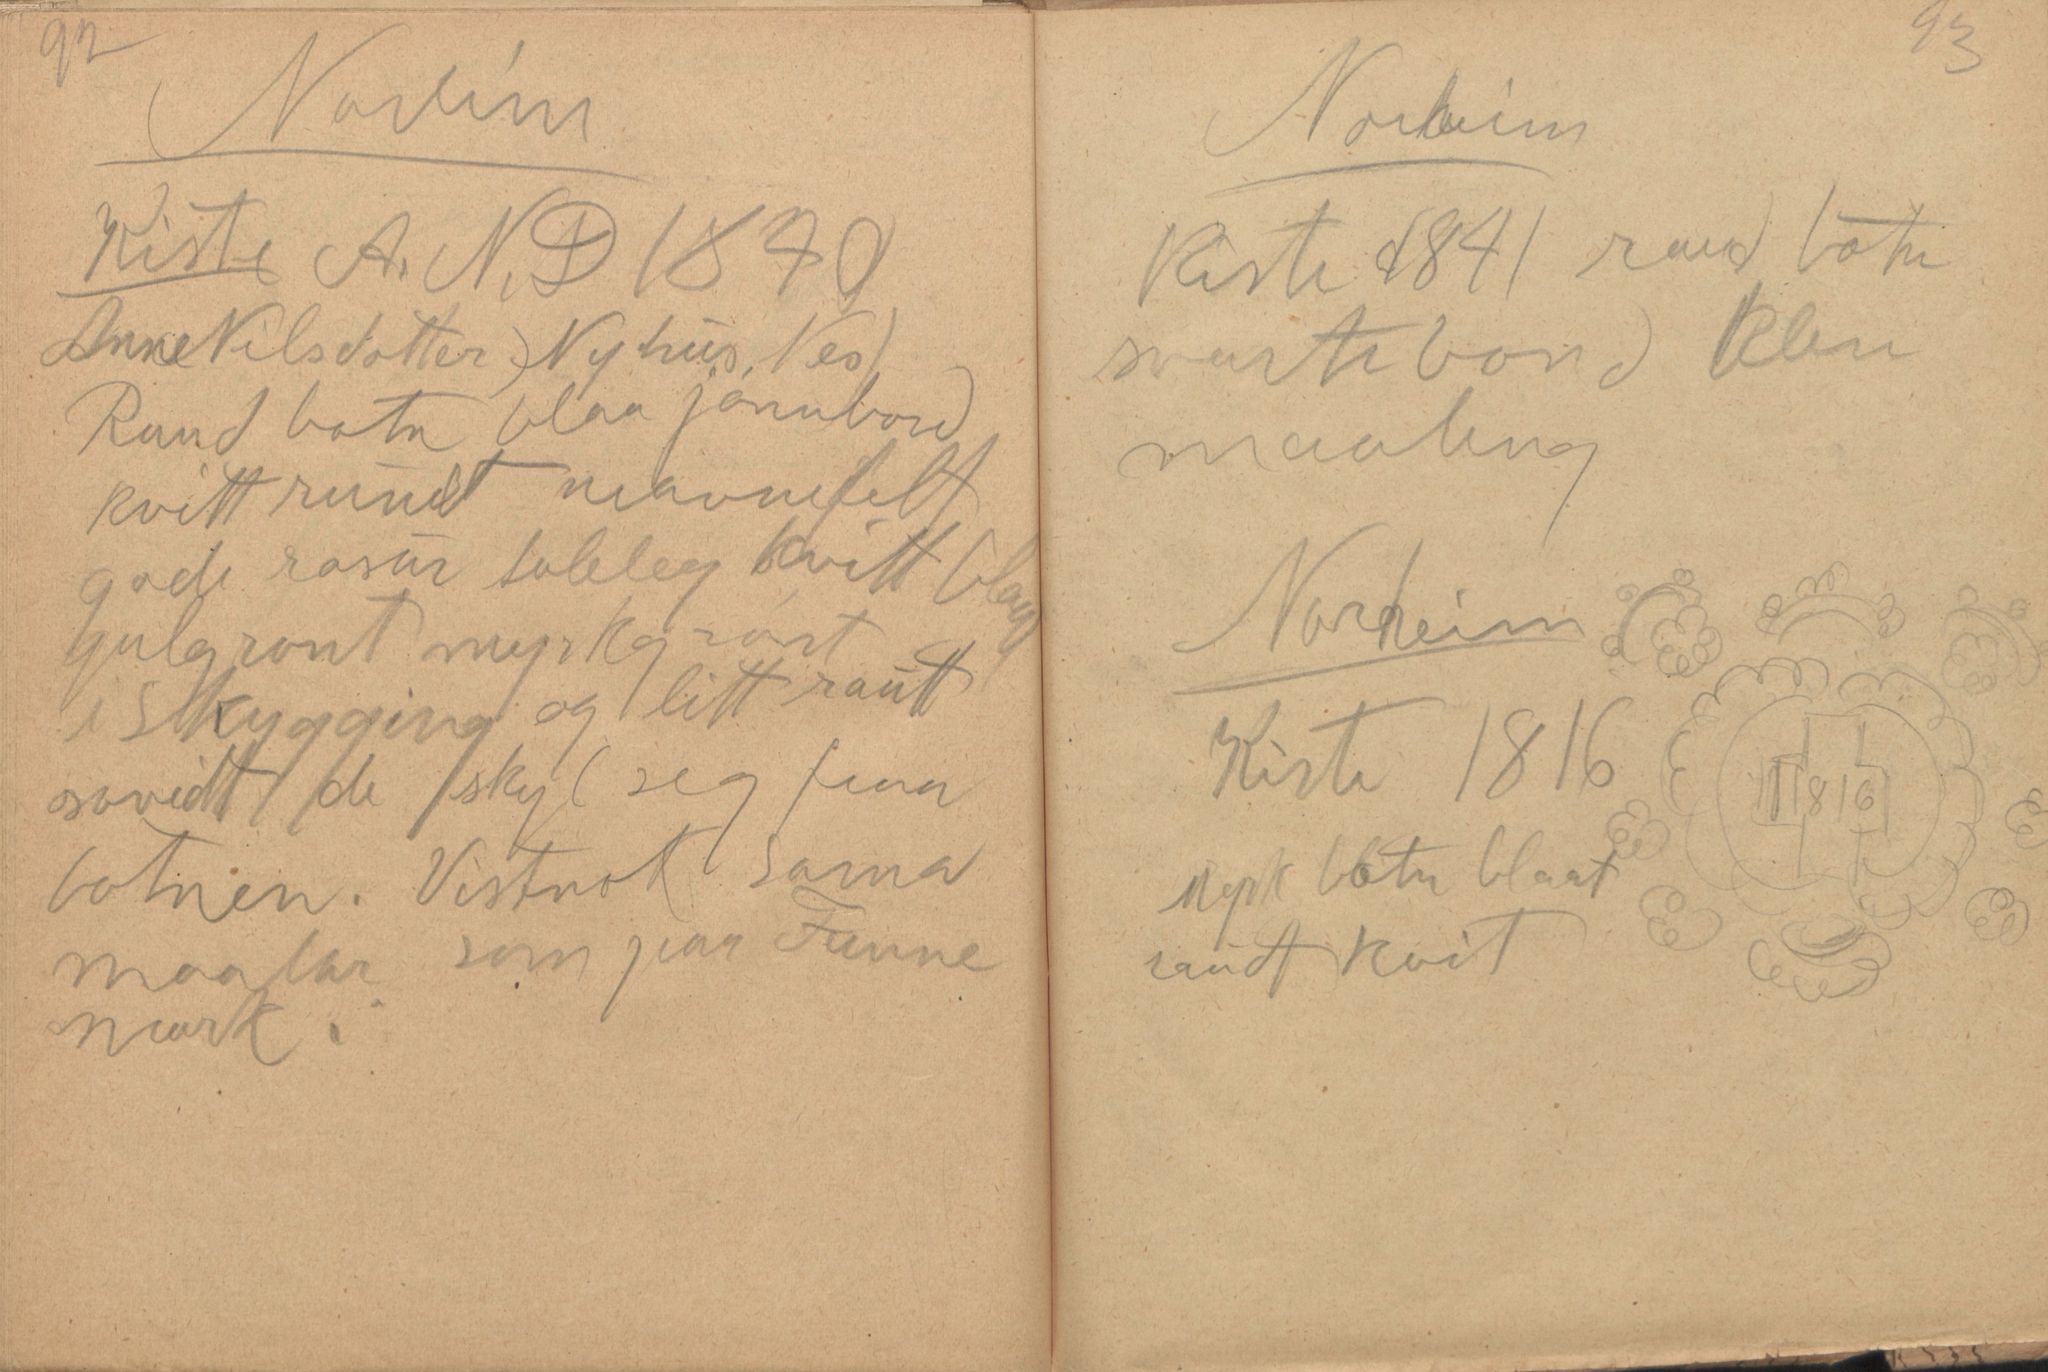 92
Norheim
Kiste A. N. D 1840
Anne Nilsdotter) Nyhus, Ves
Raud botn blaa jönnbord
kvitt rundt navnefelt
gode rosur soleleg kvitt blaa
gulgrönt myrkgrönt
i skygging og litt raudt
sovidt de skyl seg fraa
botnen. Vistnok sama
maalar som paa Finne
mark.
93
Norheim
Kiste 1841 raud botn
svarte bond klen
maaling
Norheim
Kiste 1816
1816
myrk botn blaat
raudt kvit